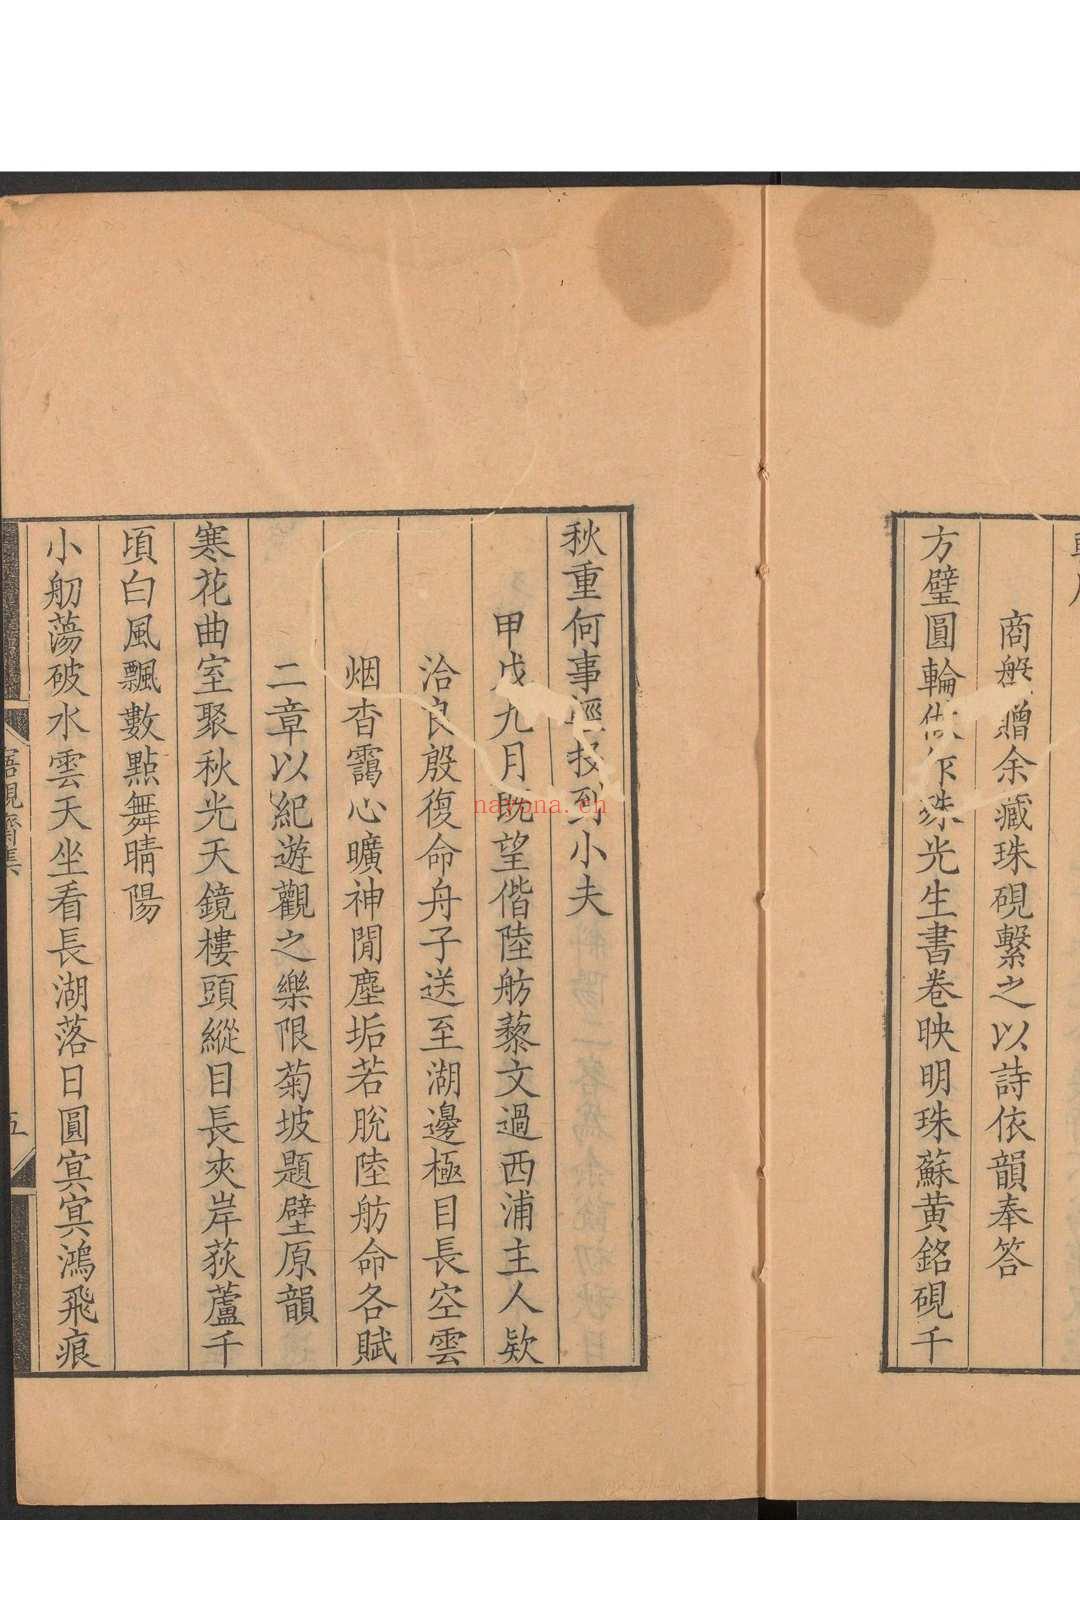 商般贈余藏珠硯繫之以詩依韻奉答
方璧圓輪作珠光生書卷映明珠蘇黃銘硯千
秋重何事輕投到小夫
甲戌九月既望偕陸舫藜文過西浦主人欵
洽良殷復命舟子送至湖邊極目長空雲
烟杳靄心曠神閒塵垢若脫陸舫命各賦
二章以紀遊觀之樂限菊坡題壁原韻
寒花曲室聚秋光天鏡樓頭縱目長夾岸荻蘆千
頃白風飄數點舞晴陽
小舠蕩破水雲天坐看長湖落日圓冥冥鴻飛痕
觀齋集
五
nayona.cn